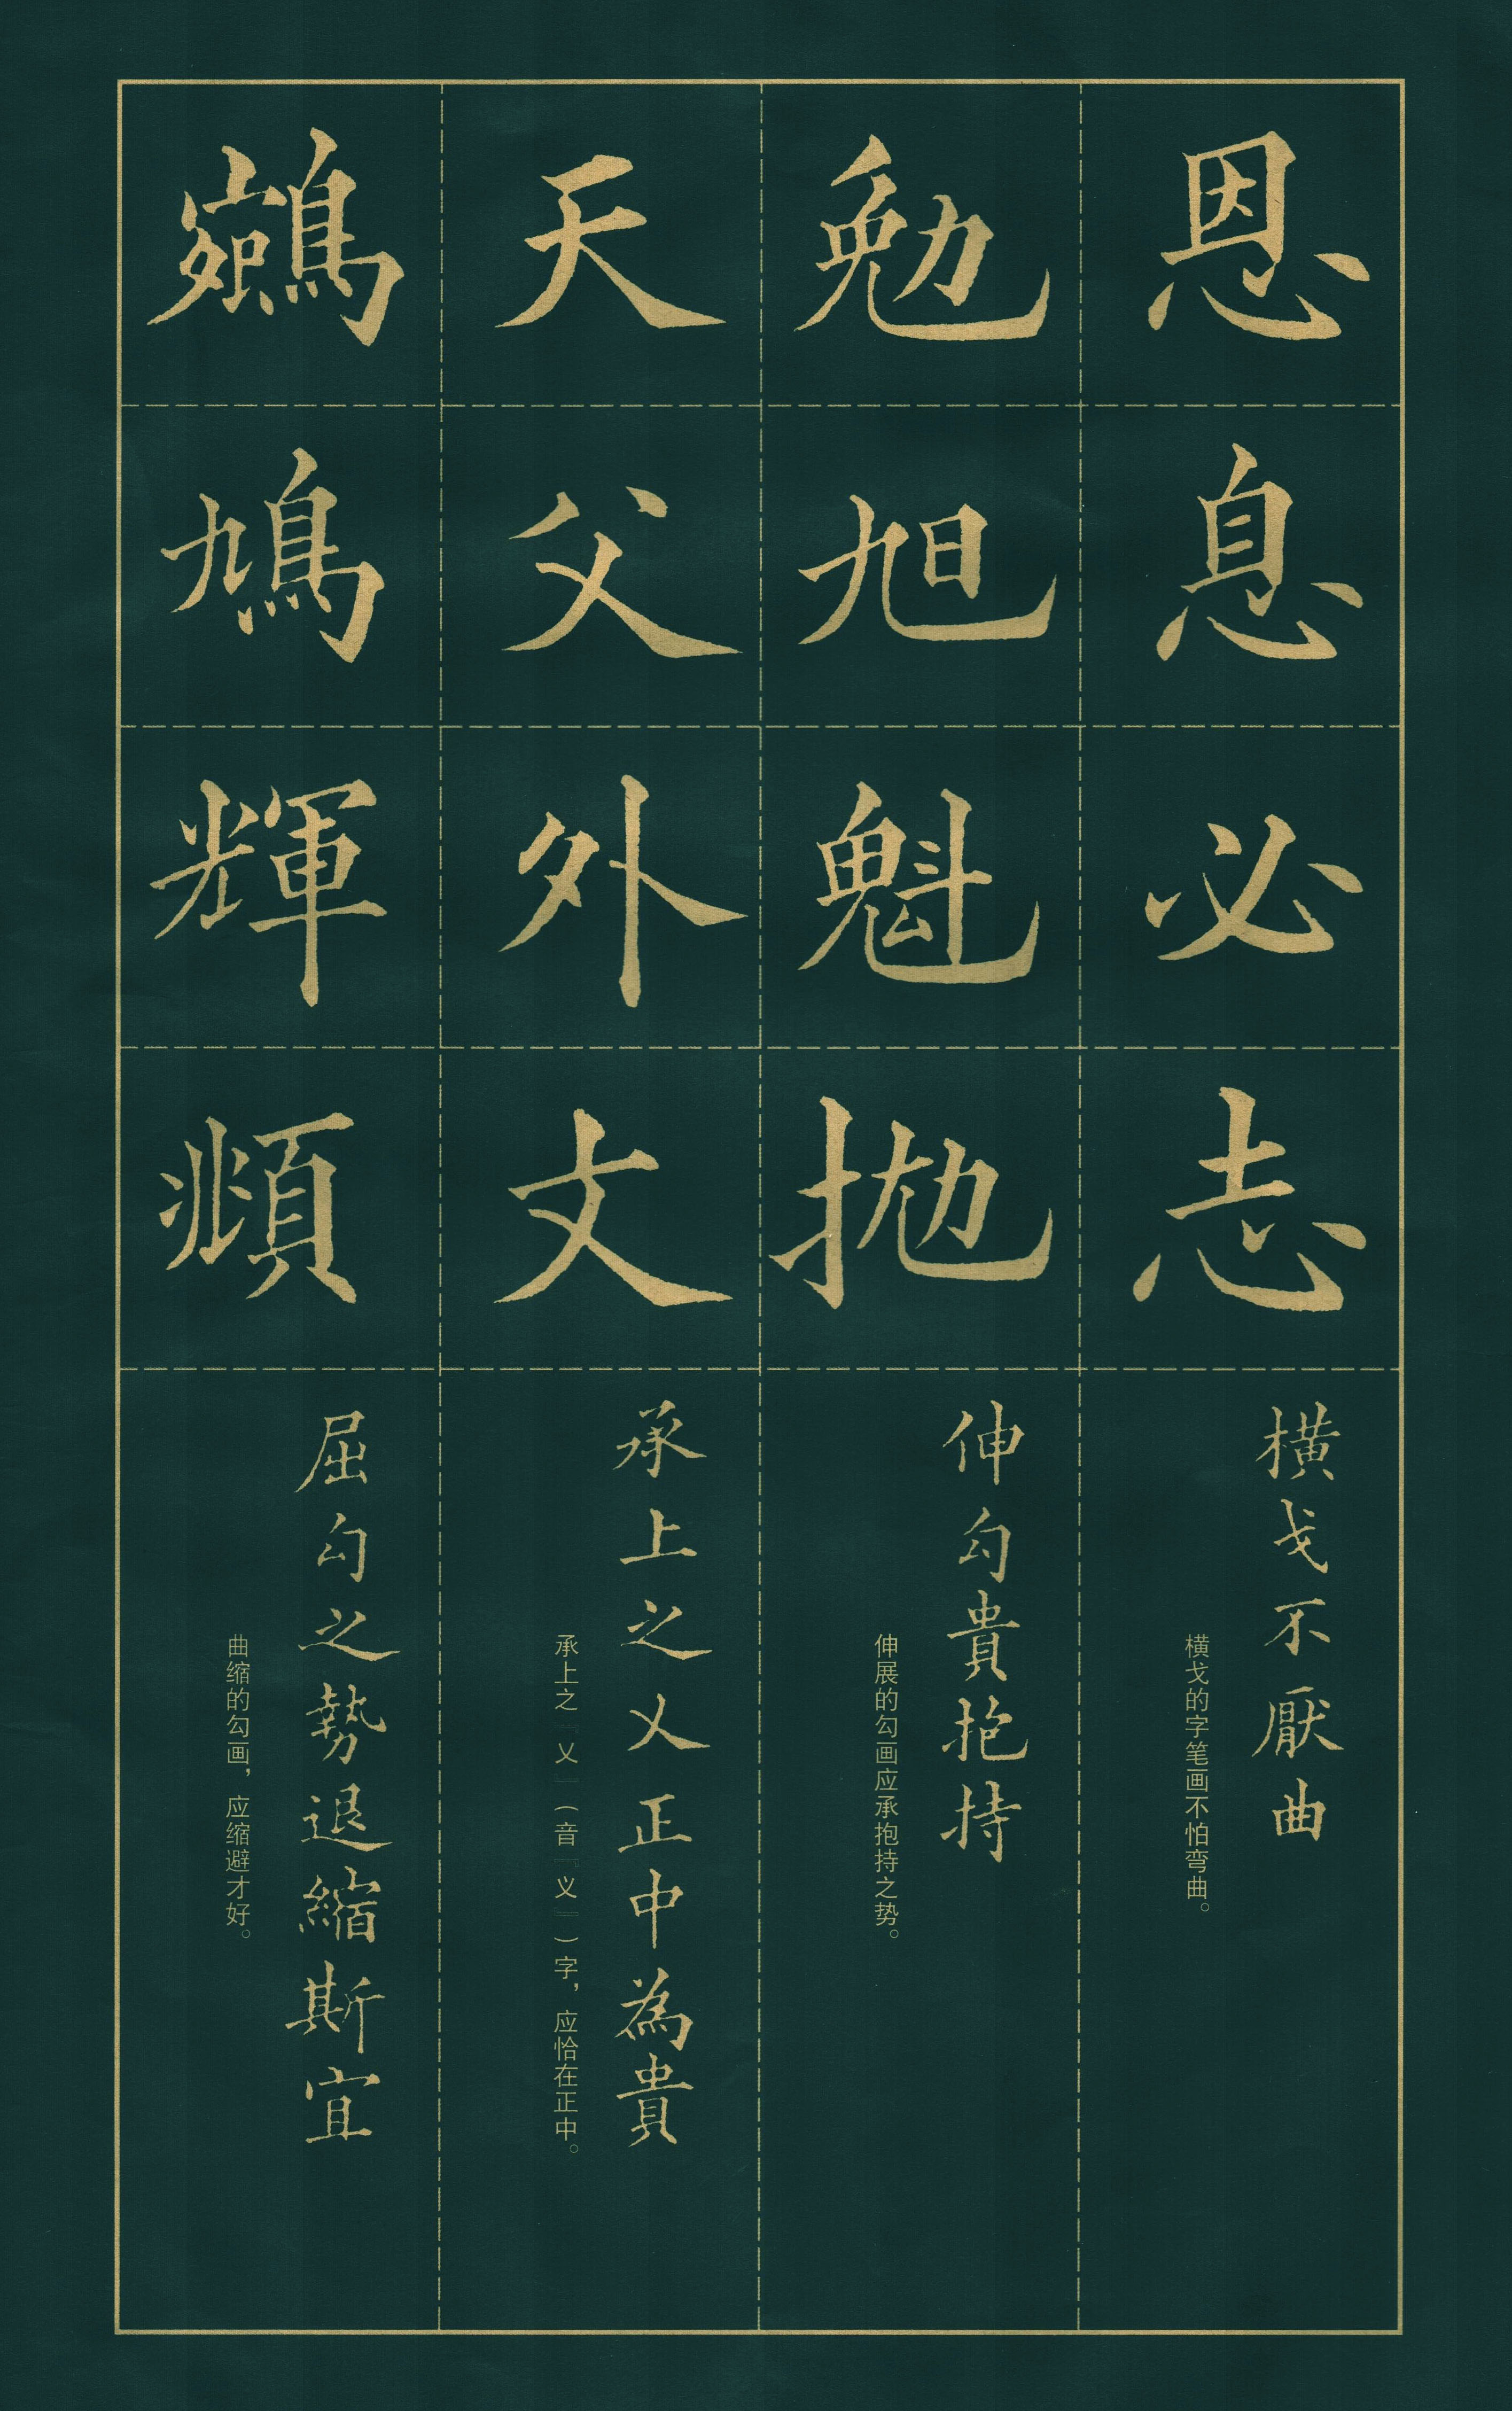 恩息必志
横戈不厭曲
横戈的字笔画不怕弯曲。
勉旭魁抛
伸勾貴抱持
伸展的勾画应承抱持之势。
天父外文
承上之乂正中為貴
承上之『乂』(音『义』)字，应恰在正中。
鵷鳩輝頫
屈勾之勢退縮斯宜
曲缩的勾画，应缩避才好。